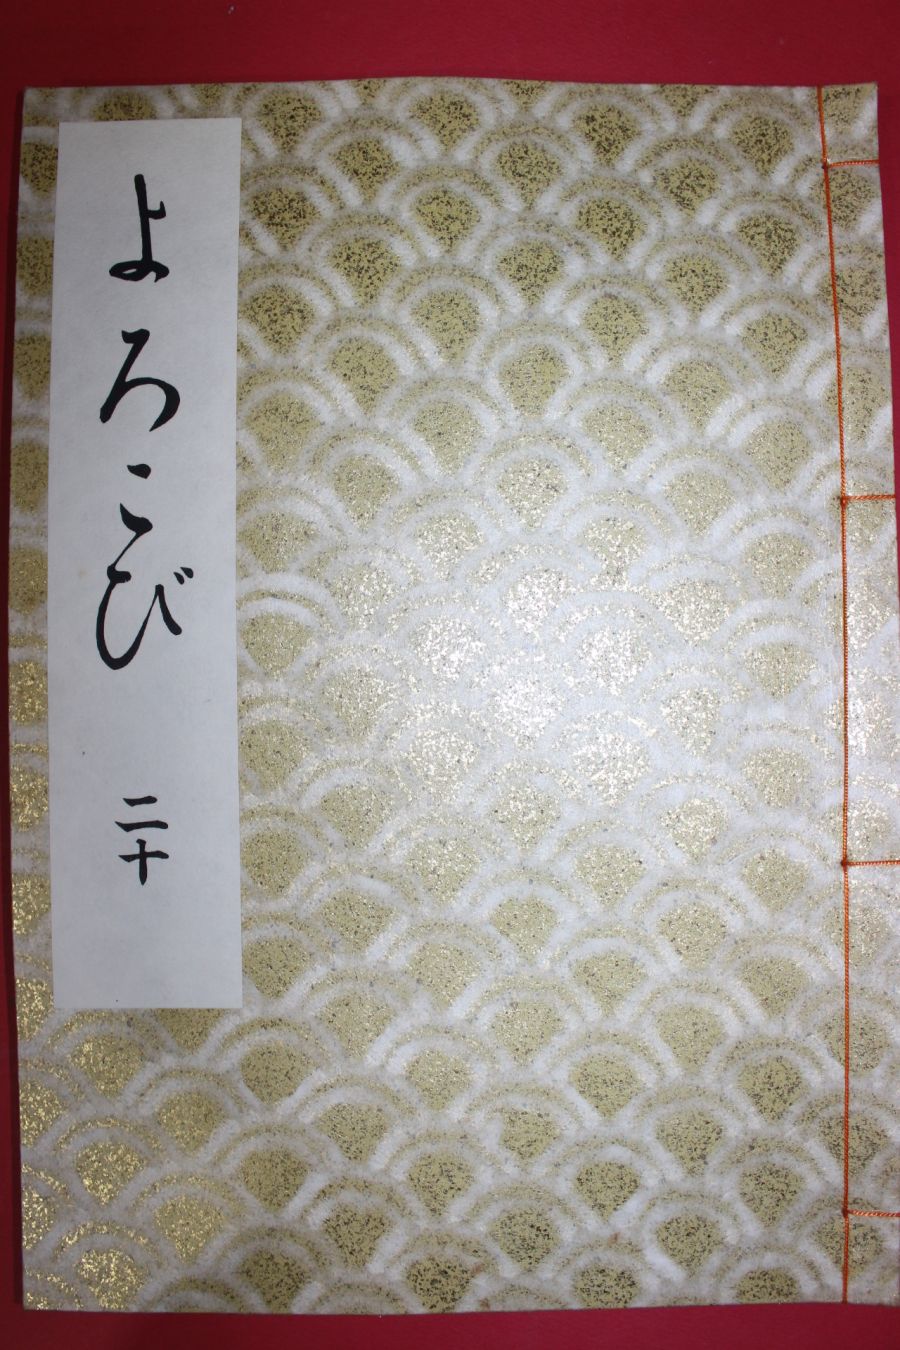 よろこび 二十